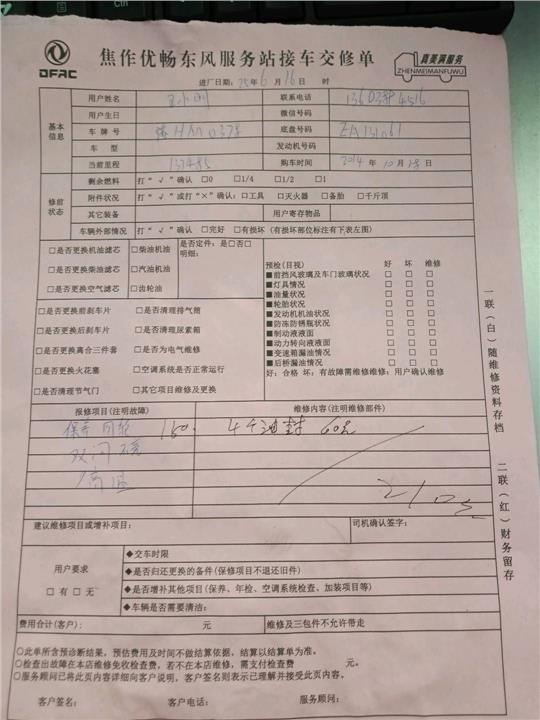 DFAC
焦作优畅东风服务站接车交修单
真美满服务
ZHENMEIMANFUWU
进厂日期：25年6月16日 时
基本信息
用户姓名 王小刚 联系电话
用户地址 微信号码
车牌号 底盘号码 EA131061
车型 发动机号码
当前里程 137485 购车时间 2014年10月18日
修前状态
剩余燃料 打“√”确认 □0 □1/4 □1/2 □1
附件状况 打“√”或打“×”确认：□工具 □灭火器 □备胎 □千斤顶
其它装备 用户寄存物品
车辆外部情况 打“√”确认 □完好 □有损坏（有损坏部位标注有下表左图）
□是否更换机油滤芯 □柴油机油 是否定件：是□否□
明细：
□是否更换柴油滤芯 □汽油机油
□是否更换空气滤芯 □齿轮油
□是否更换前刹车片 □是否清理排气筒
□是否更换后刹车片 □是否清理尿素箱
□是否更换离合三件套 □是否为电气维修
□是否更换火花塞 □空调系统是否正常运行
□是否清理节气门 □其它项目维修及更换
预检（目视） 好 坏 维修
■前挡风玻璃及车门玻璃状况 □ □ □
■灯具情况 □ □ □
■油量状况 □ □ □
■轮胎状况 □ □ □
■发动机机油状况 □ □ □
■防冻防锈瓶状况 □ □ □
■制动液液面 □ □ □
■动力转向液液面 □ □ □
■变速箱漏油情况 □ □ □
■后桥漏油情况 □ □ □
好：合格 坏：有故障需维修维修：用户确认维修
报修项目（注明故障） 维修内容（注明维修部件）
保养 150. 4个油封 60元
高温
210元
建议维修项目或增补项目： 司机确认签字：
用户要求
□有 □无
◆交车时限
◆是否归还更换的备件（保修项目不退还旧件）
◆是否增补其他项目（保养、年检、空调系统检查、加装项目等）
◆车辆是否需要清洁：
费用合计（客户）： 元 维修及三包件不允许带走
○此单所含预诊断结果，预估费用及时间不做结算依据，结算以结算单为准。
○检查出故障在本店维修免收检查费，若不在本店维修，需支付检查费 元。
○服务顾问已将此页内容详细向客户说明，客户签名则表示已理解并接受此页内容。
客户签名： 客户电话： 服务顾问：
一联（白）随维修资料存档
二联（红）财务留存